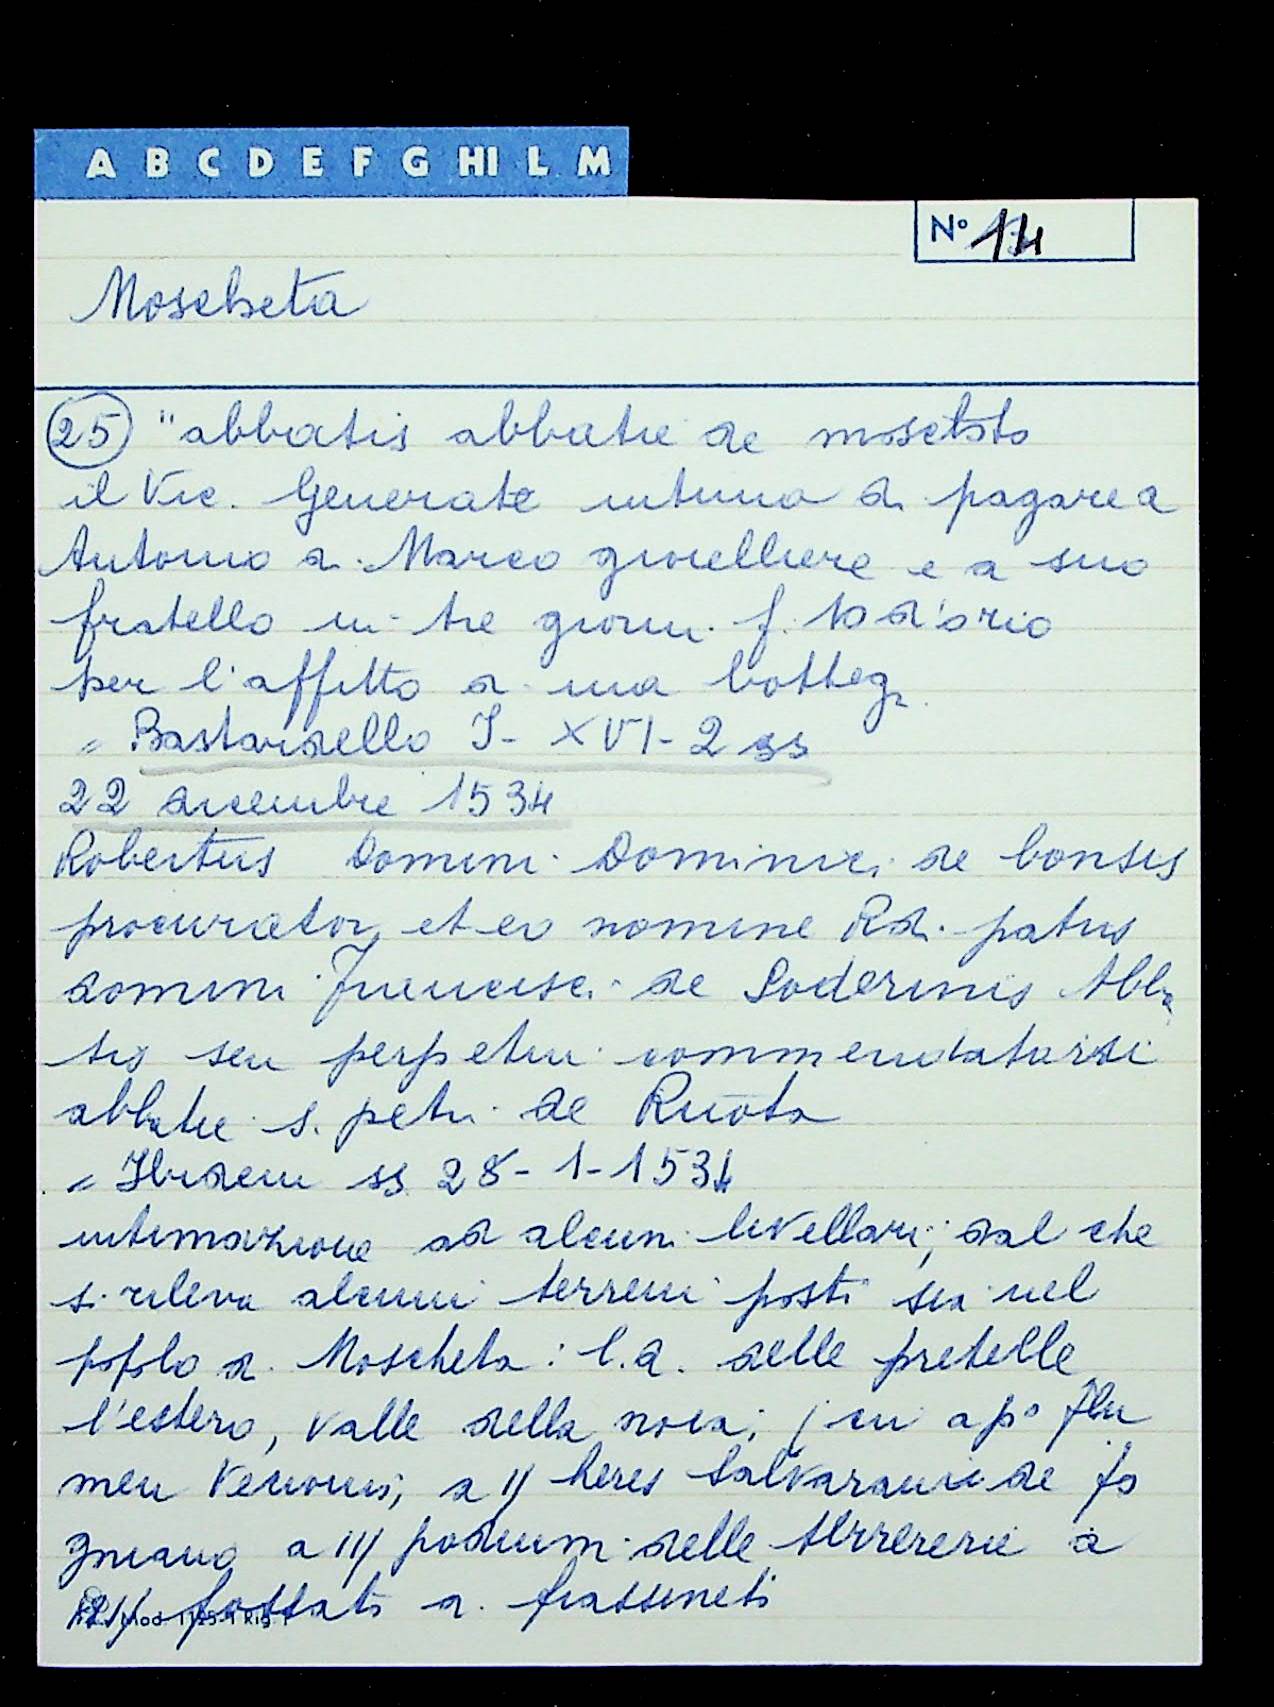 A B C D E F G HI L M
N° 14
Moscheta
25 "abbatis abbatie de moscheto
il Vic. Generale intima di pagare a
Antonio di Marco gioielliere e a suo
fratello in tre giorni f. 10 d'oro
per l'affitto di una bottega
= Bastardello I- XVI- 2 ss
22 dicembre 1534
Robertus Domini Dominici de bonsis
procurator et eo nomine Rdi. patris
domini Francisci de Soderinis Abba
tis seu perpetui commendatarii
abbatie S. petri de Ruota
= Ibidem ss 28-1-1534
intimazione ad alcuni livellari, dal che
si rileva alcuni terreni posti sia nel
popolo di Moscheta: l.d. delle pretelle
l'estero, valle della noce; cui a p° flu
men Venonis; a II heres Salvarani de fo
gnano a III podium delle a
IIII fossato di frassineti
Mod. 1125-1 Rig. 1